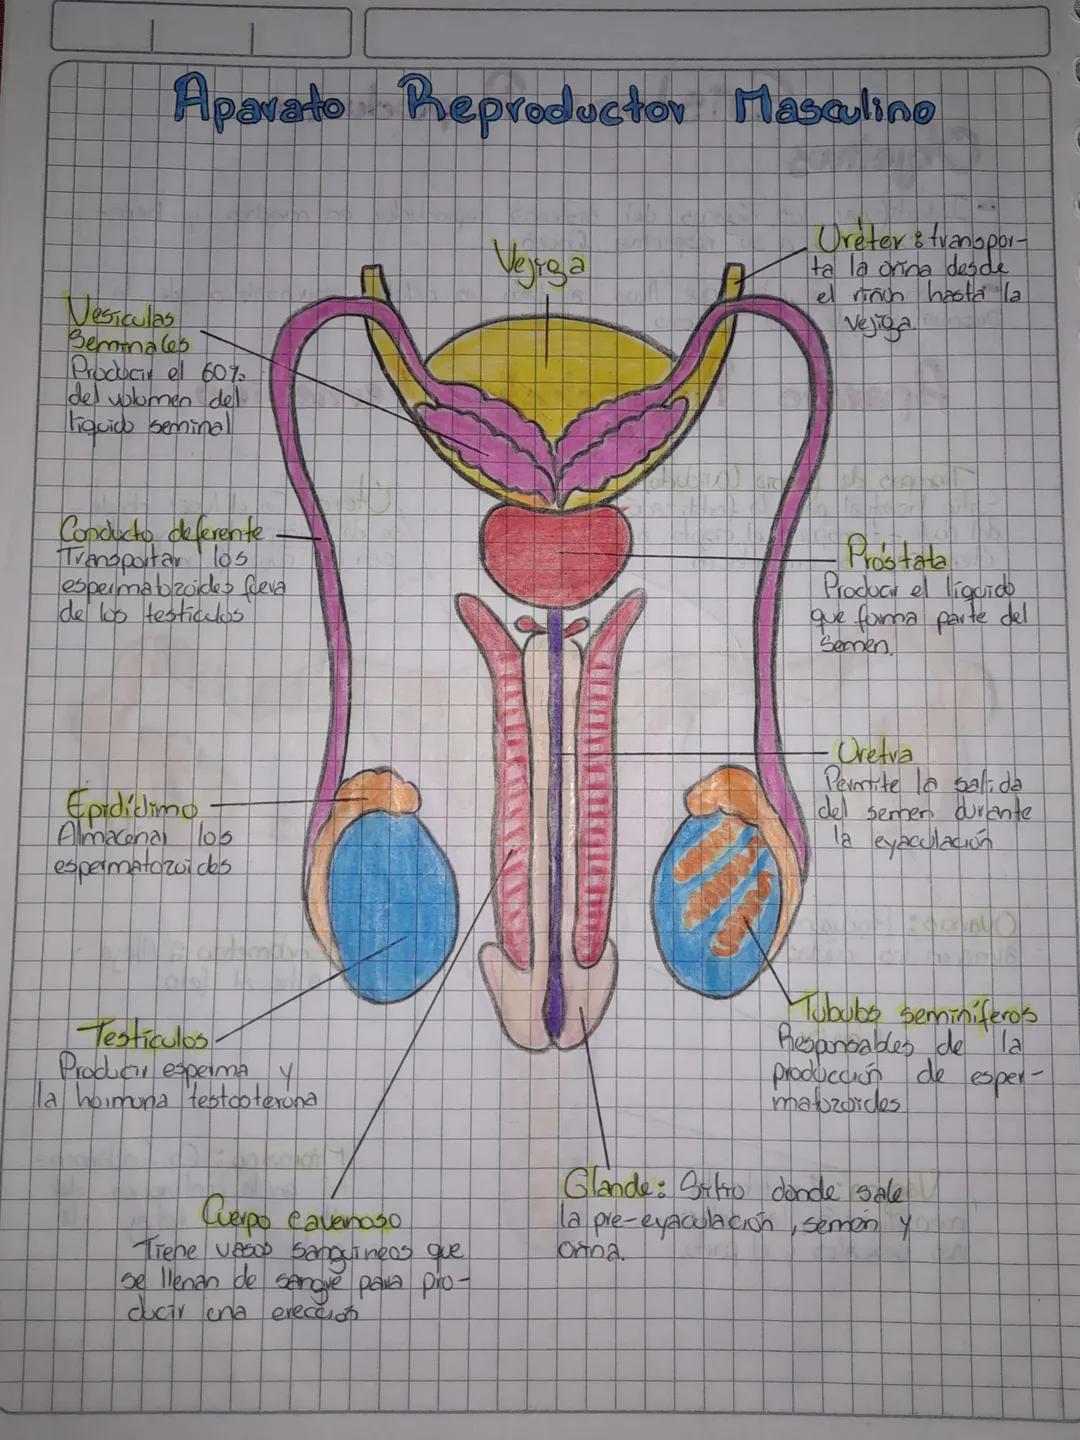 Aparato Reproductor Masculino
Vejiga
Uréter: transpor-
ta la orina desde
el riñón hasta la
Vejiga.
Vesículas
Seminales
Producir el 60%
del volumen del
líquido seminal
Conducto deferente
Transportar los
espermatozoides fuera
de los testículos
Próstata
Producir el líquido
que forma parte del
Semen.
Uretra
Permite la salida
del semen durante
la eyaculación
Epidídimo
Almacenar los
espermatozoides
Testículos
Producir esperma y
la hormona testosterona
Tubulos seminíferos
Responsables de la
producción de esper-
matozoides
Cuerpo cavernoso
Tiene vasos sanguíneos que
se llenan de sangre para pro-
ducir una erección
Glande: Sitio donde sale
la pre-eyaculación, semen y
orina.